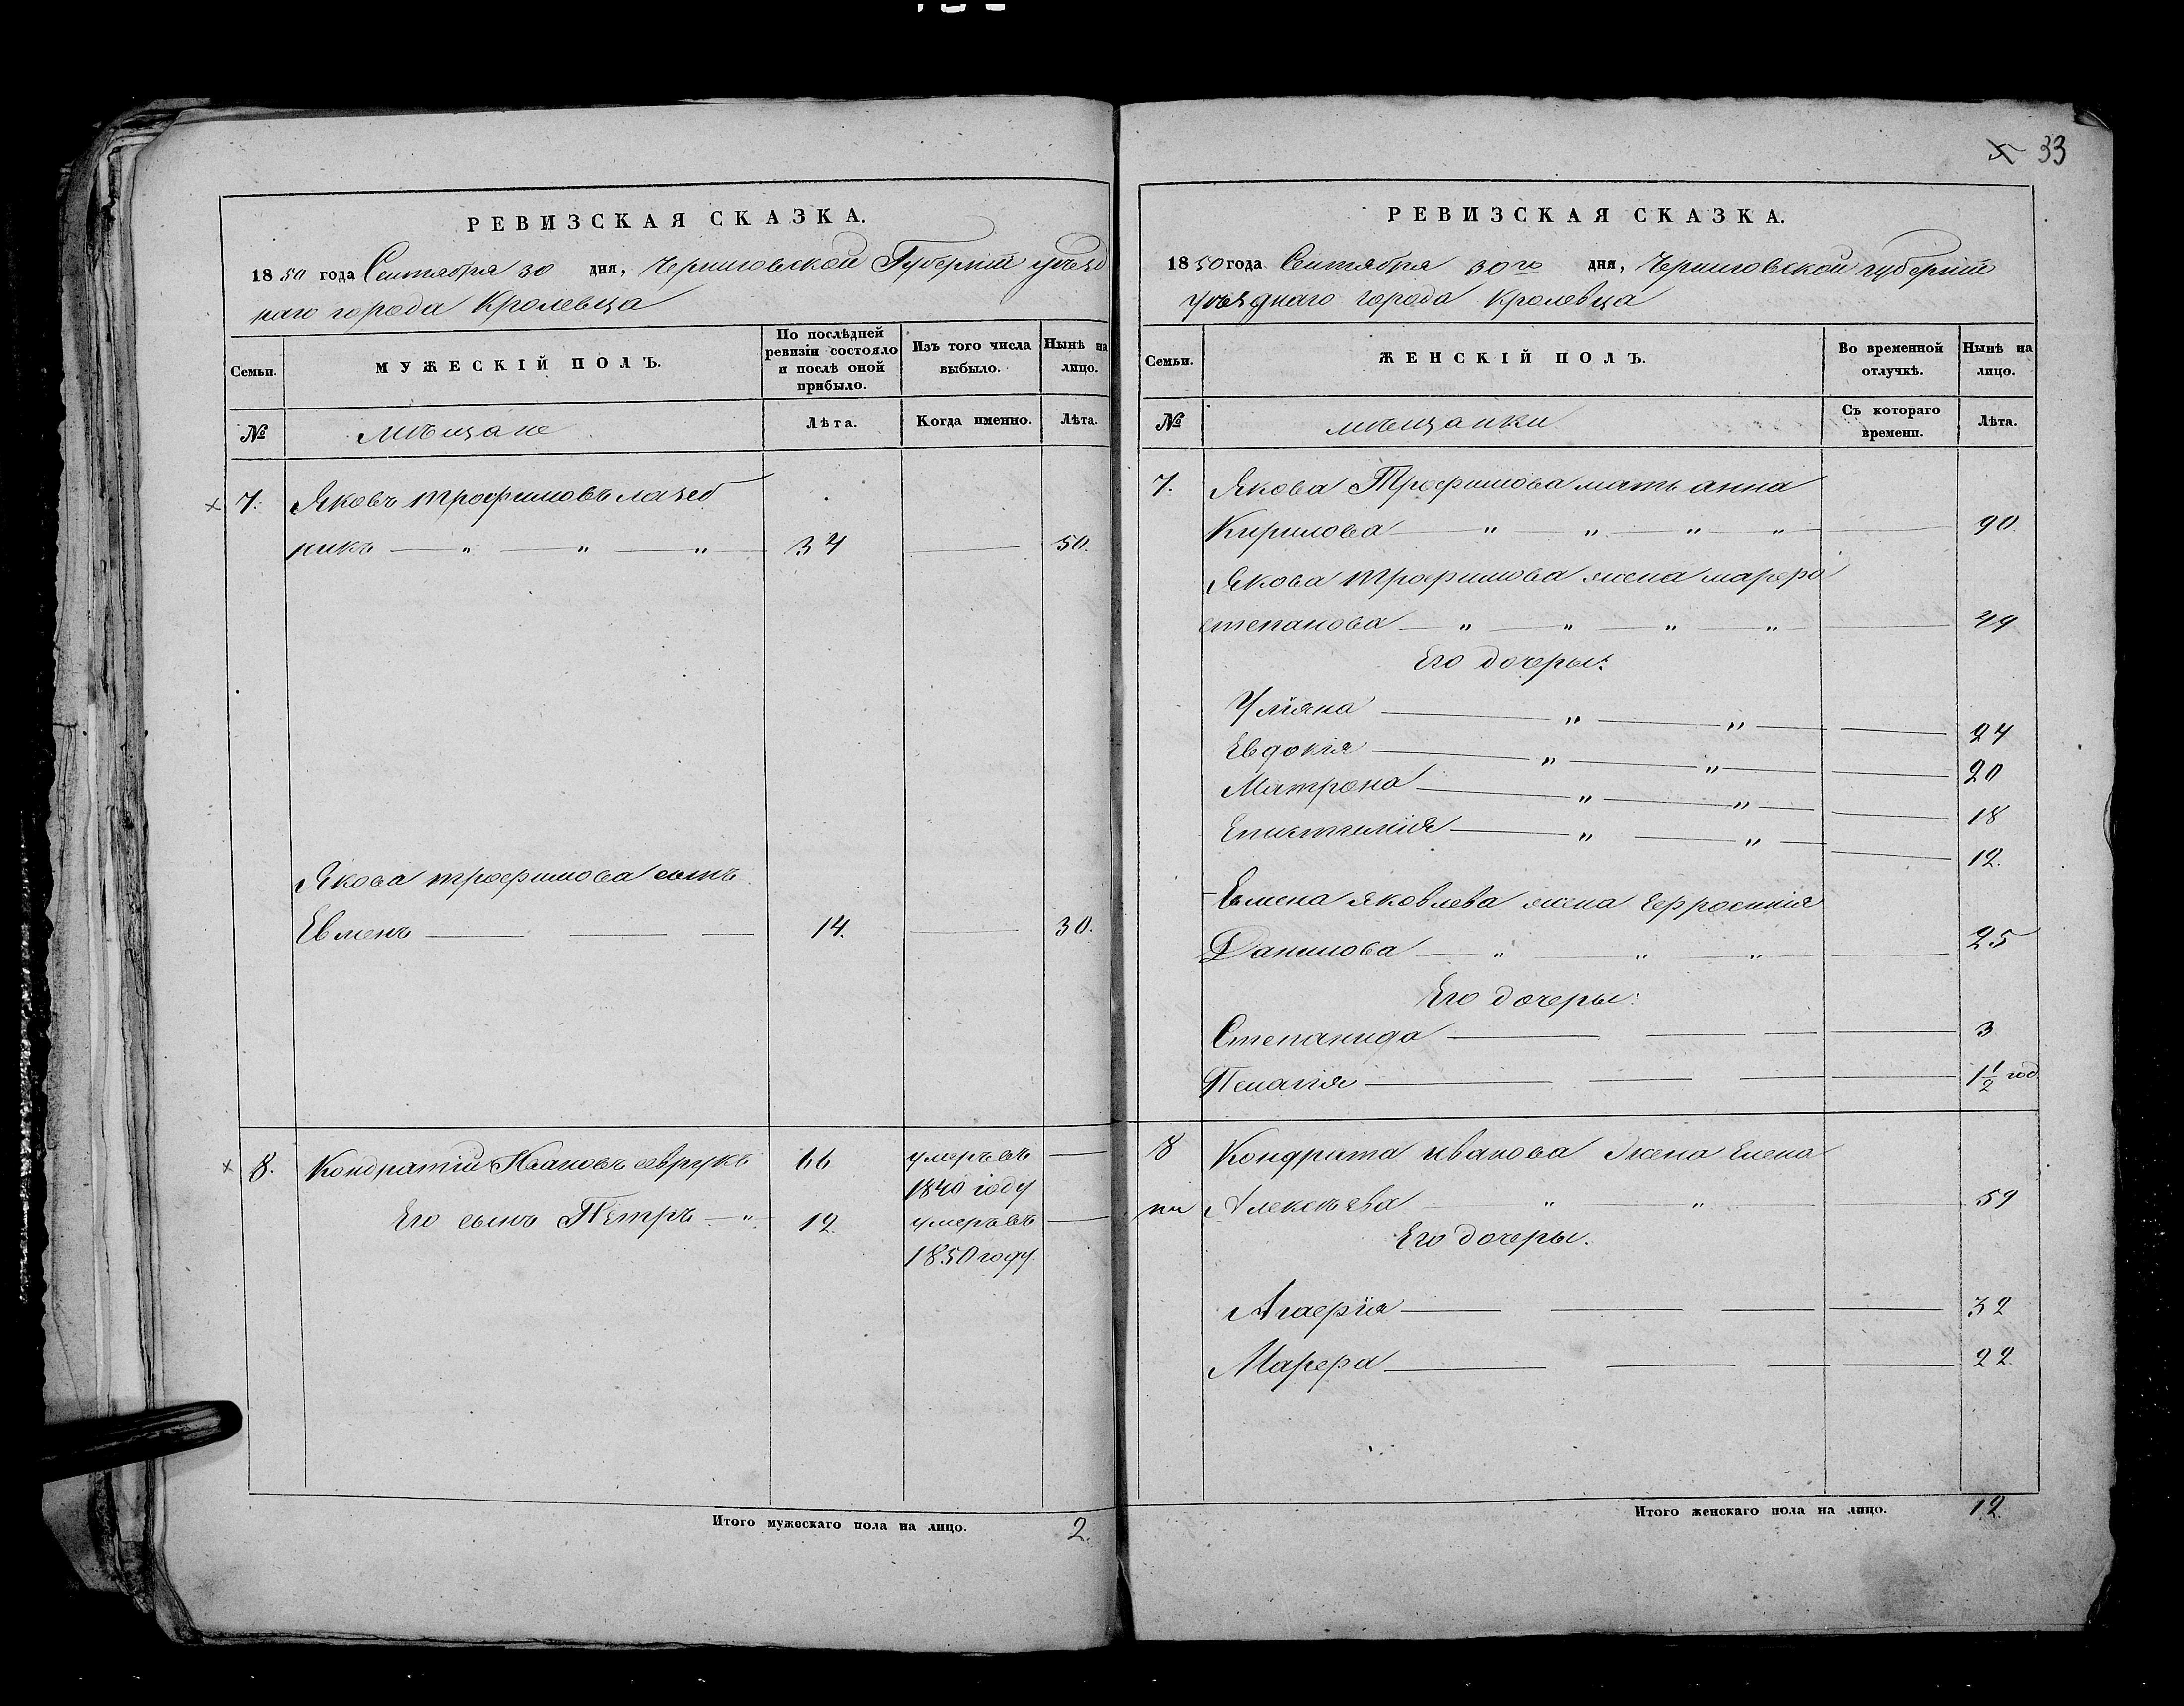 РЕВИЗСКАЯ СКАЗКА.
1850 года Сентября 30 дня, Черниговской Губерніи уѣзд
наго города Кролевца
Семьи.
МУЖЕСКІЙ ПОЛЪ.
По послѣдней ревизіи состояло и послѣ оной прибыло.
Изъ того числа выбыло.
Нынѣ на лицо.
№
мѣщане
Лѣта.
Когда именно.
Лѣта.
7. Яковъ Трофимовъ лазеб
никъ — „ — „ — „ 34 — 50.
Якова трофимова сынъ
Евменъ — 14. — 30.
8. Кондратій Ивановъ севрукъ 66 умеръ въ —
1840 году
Его сынъ Петръ — „ 12. умеръ въ —
1850 году.
Итого мужескаго пола на лицо. 2.
33
РЕВИЗСКАЯ СКАЗКА.
1850 года Сентября 30го дня, Черниговской губерніи
уѣзднаго города Кролевца
Семьи.
ЖЕНСКІЙ ПОЛЪ.
Во временной отлучкѣ.
Нынѣ на лицо.
№
мѣщанки
Съ котораго времени.
Лѣта.
7. Якова Трофимова мать анна
Кирилова — „ — „ — „ — „ — 90.
Якова трофимова жена марфа
степанова — „ — „ — „ — „ — 49
Его дочеры:
Уліяна — „ — „ — 24
Евдокія — „ — „ — 20
Матрона — „ — „ — 18
Епистимія — „ — „ — 12.
Евмена яковлева жена Ефросинія
Данилова — „ — „ — „ — 25
Его дочеры:
Степанида — 3
Пелагія — 1 1/2 год.
8 Кондрата иванова жена Елена
Алексѣева — „ — „ — 59
Его дочеры.
Агафія — 32
Марфа — 22.
Итого женскаго пола на лицо. 12.